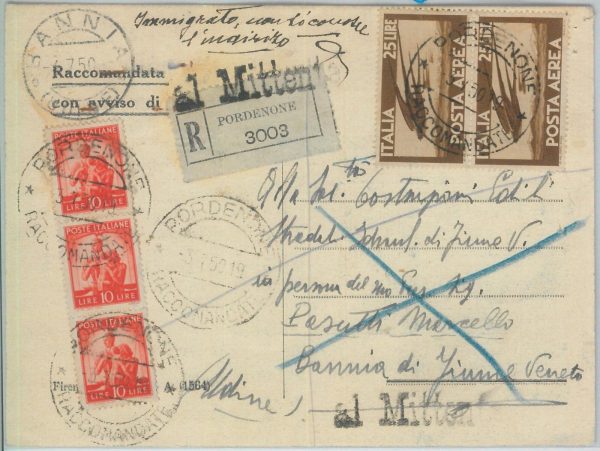 BANNIA
7.50
Immigrato, non si conosce
l'indirizzo
Raccomandata
con avviso di
al Mittente
R
PORDENONE
3003
25 LIRE
ITALIA
POSTA AEREA
25 LIRE
ITALIA
POSTA AEREA
PORDENONE
RACCOMANDATE
POSTE ITALIANE
LIRE 10 LIRE
PORDENONE
RACCOMANDATE
POSTE ITALIANE
LIRE 10 LIRE
PORDENONE
50.19
RACCOMANDATE
POSTE ITALIANE
LIRE 10 LIRE
PORDENONE
RACCOMANDATE
Costruzioni Edili
di Fiume V.
in persona del
Pasutti Marcello
Bannia di Fiume Veneto
Udine
Firen A. (1564)
al Mitten